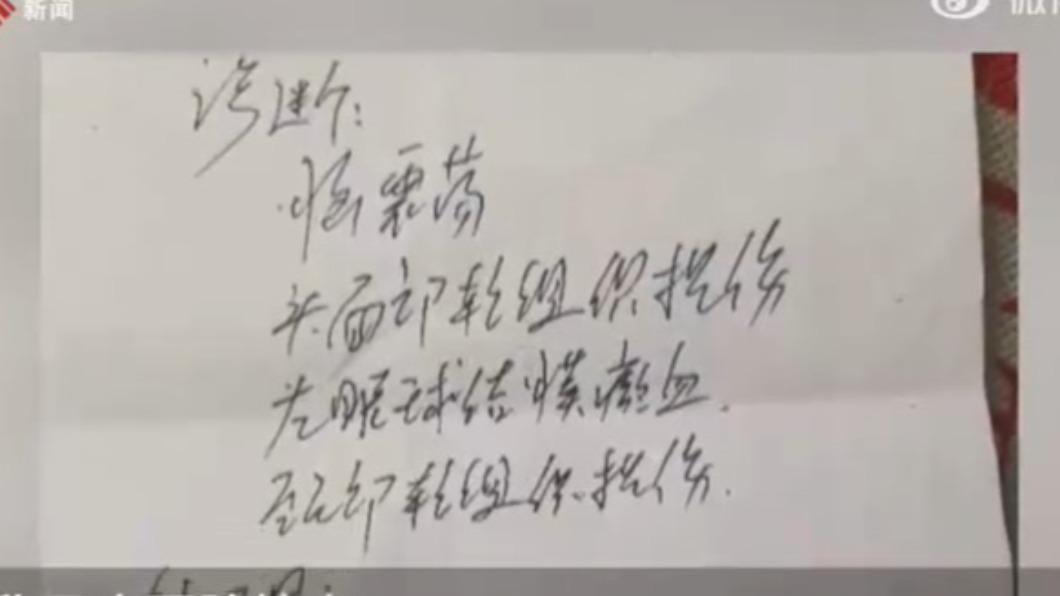 新闻
诊断:
脑震荡
头面部软组织挫伤
左眼球结膜瘀血.
颈部软组织挫伤.